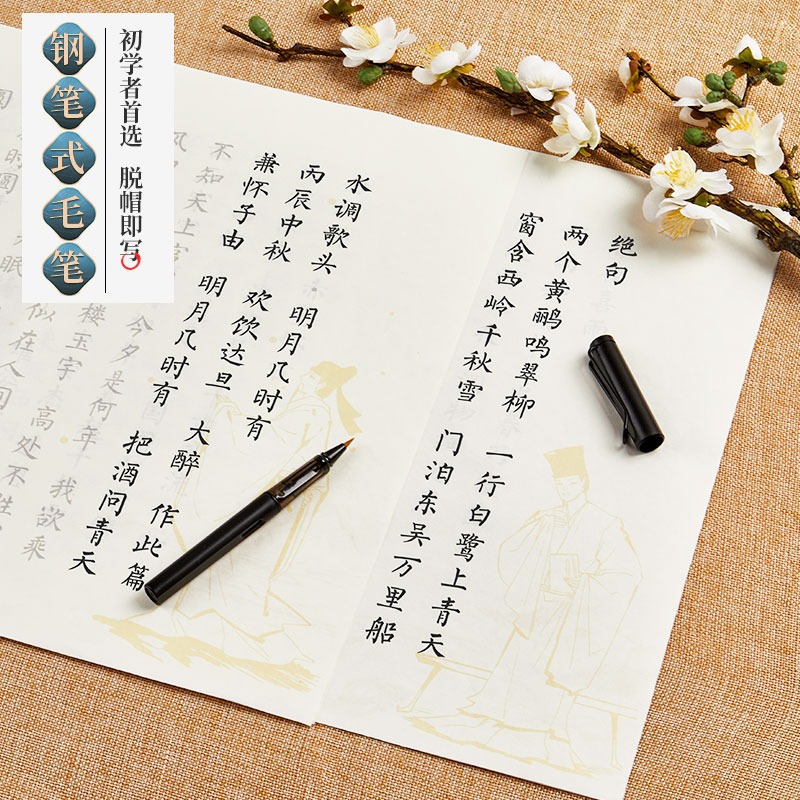 钢笔式毛笔
初学者首选 脱帽即写
绝句
两个黄鹂鸣翠柳 一行白鹭上青天
窗含西岭千秋雪 门泊东吴万里船
水调歌头 明月几时有
丙辰中秋 欢饮达旦 大醉 作此篇
兼怀子由 明月几时有 把酒问青天
不知天上宫 今夕是何年 我欲乘
风 楼玉宇 高处不胜
似在人间